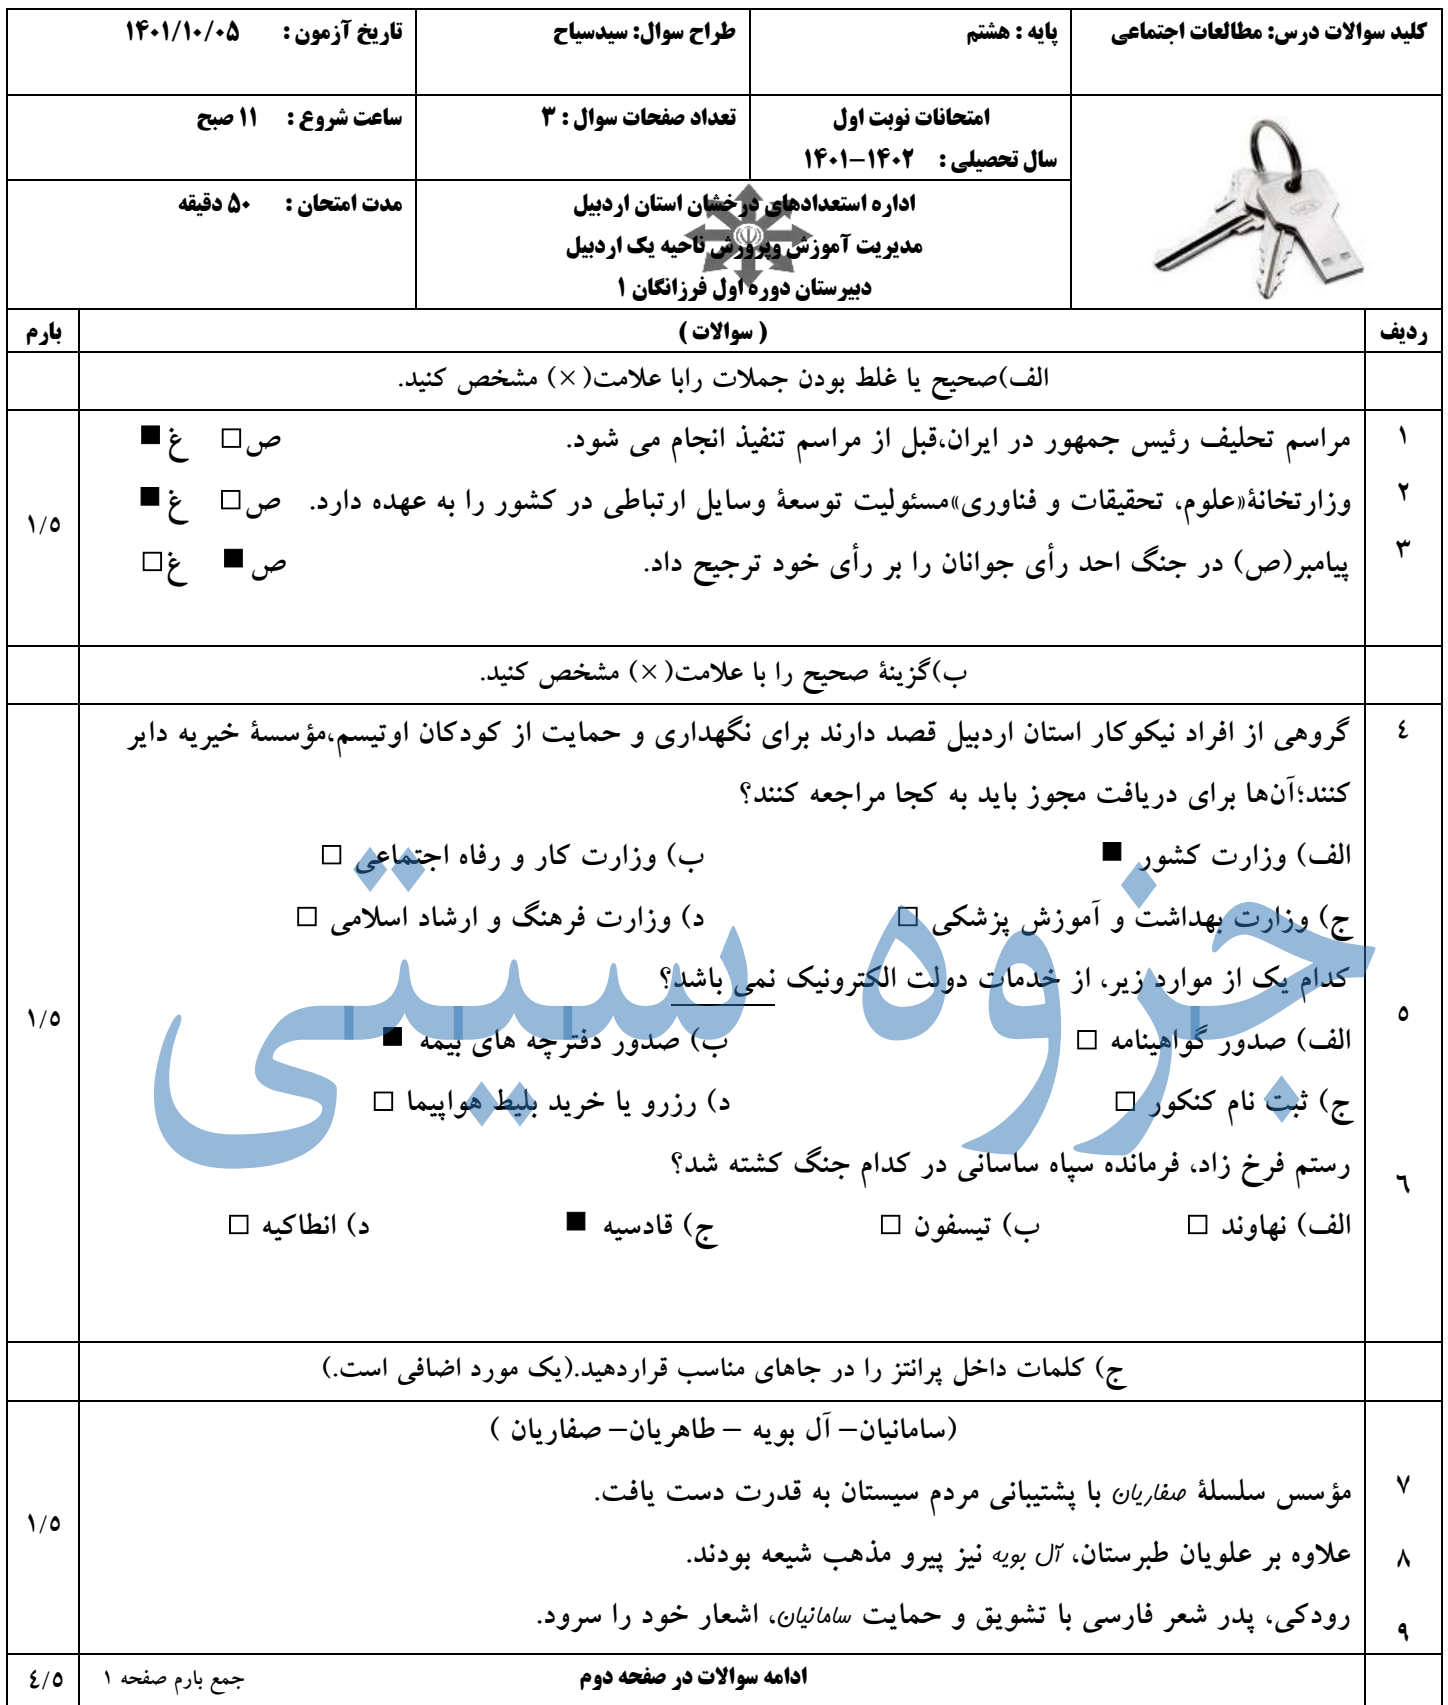 کلید سوالات درس: مطالعات اجتماعی
پایه : هشتم
طراح سوال: سیدسیاح
تاریخ آزمون : ۱۴۰۱/۱۰/۰۵
امتحانات نوبت اول
سال تحصیلی : ۱۴۰۲–۱۴۰۱
تعداد صفحات سوال : ۳
ساعت شروع : ۱۱ صبح
اداره استعدادهای درخشان استان اردبیل
مدیریت آموزش وپرورش ناحیه یک اردبیل
دبیرستان دوره اول فرزانگان ۱
مدت امتحان : ۵۰ دقیقه
ردیف ( سوالات ) بارم
الف)صحیح یا غلط بودن جملات رابا علامت(×) مشخص کنید.
۱ مراسم تحلیف رئیس جمهور در ایران،قبل از مراسم تنفیذ انجام می شود. ص□ غ■
۲ وزارتخانۀ«علوم، تحقیقات و فناوری»مسئولیت توسعۀ وسایل ارتباطی در کشور را به عهده دارد. ص□ غ■
۱/۵
۳ پیامبر(ص) در جنگ احد رأی جوانان را بر رأی خود ترجیح داد. ص■ غ□
ب)گزینۀ صحیح را با علامت(×) مشخص کنید.
٤ گروهی از افراد نیکوکار استان اردبیل قصد دارند برای نگهداری و حمایت از کودکان اوتیسم،مؤسسۀ خیریه دایر
کنند؛آن‌ها برای دریافت مجوز باید به کجا مراجعه کنند؟
الف) وزارت کشور ■ ب) وزارت کار و رفاه اجتماعی □
ج) وزارت بهداشت و آموزش پزشکی □ د) وزارت فرهنگ و ارشاد اسلامی □
۵ کدام یک از موارد زیر، از خدمات دولت الکترونیک نمی باشد؟
۱/۵
الف) صدور گواهینامه □ ب) صدور دفترچه های بیمه ■
ج) ثبت نام کنکور □ د) رزرو یا خرید بلیط هواپیما □
٦ رستم فرخ زاد، فرمانده سپاه ساسانی در کدام جنگ کشته شد؟
الف) نهاوند □ ب) تیسفون □ ج) قادسیه ■ د) انطاکیه □
جزوه سیتی
ج) کلمات داخل پرانتز را در جاهای مناسب قراردهید.(یک مورد اضافی است.)
(سامانیان– آل بویه – طاهریان– صفاریان )
۷ مؤسس سلسلۀ صفاریان با پشتیبانی مردم سیستان به قدرت دست یافت.
۱/۵
۸ علاوه بر علویان طبرستان، آل بویه نیز پیرو مذهب شیعه بودند.
۹ رودکی، پدر شعر فارسی با تشویق و حمایت سامانیان، اشعار خود را سرود.
ادامه سوالات در صفحه دوم جمع بارم صفحه ۱ ٤/۵